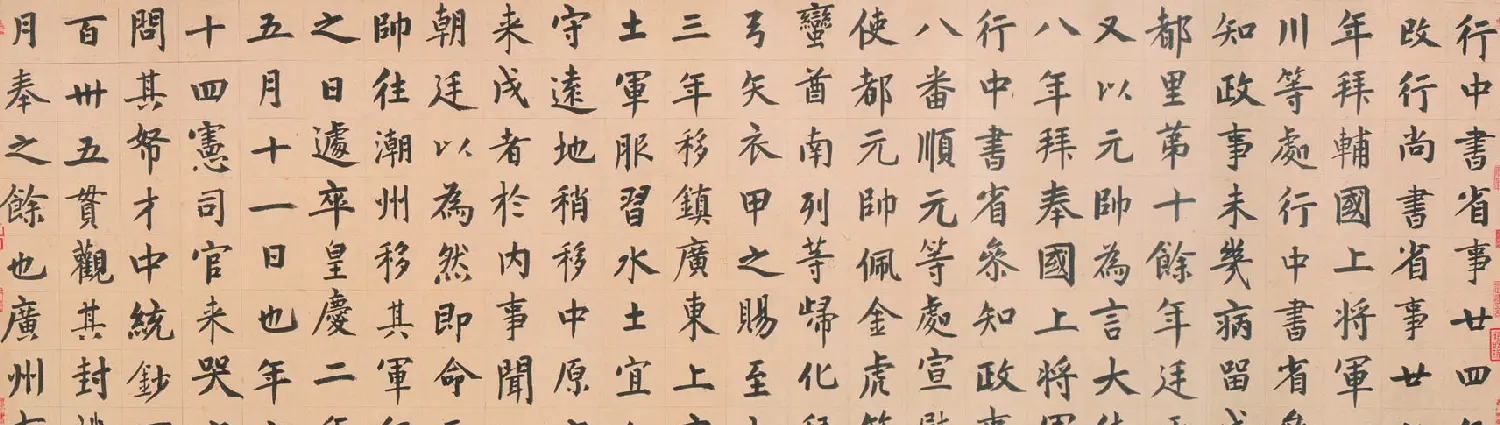 行中書省事廿四
改行尚書省事廿
年拜輔國上將軍
川等處行中書省
知政事未幾病留
都里第十餘年廷
又以元帥為言大
八年拜奉國上將
行中書省叅知政
八番順元等處宣
使都元帥佩金虎
蠻酋南列等歸化
弓矢衣甲之賜至
三年移鎮廣東上
土軍服習水土宜
守遠地稍移中原
来戍者於内事聞
朝廷以為然即命
帥往潮州移其軍
之日遽卒皇慶二
五月十一日也年
十四憲司官来哭
問其帑才中統鈔
百卅五貫觀其封
月奉之餘也廣州